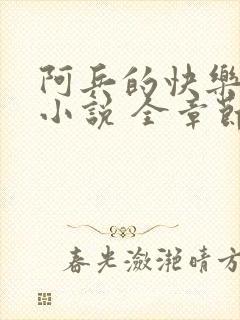 阿兵的快樂
小說 全章節
春光瀲灩晴方